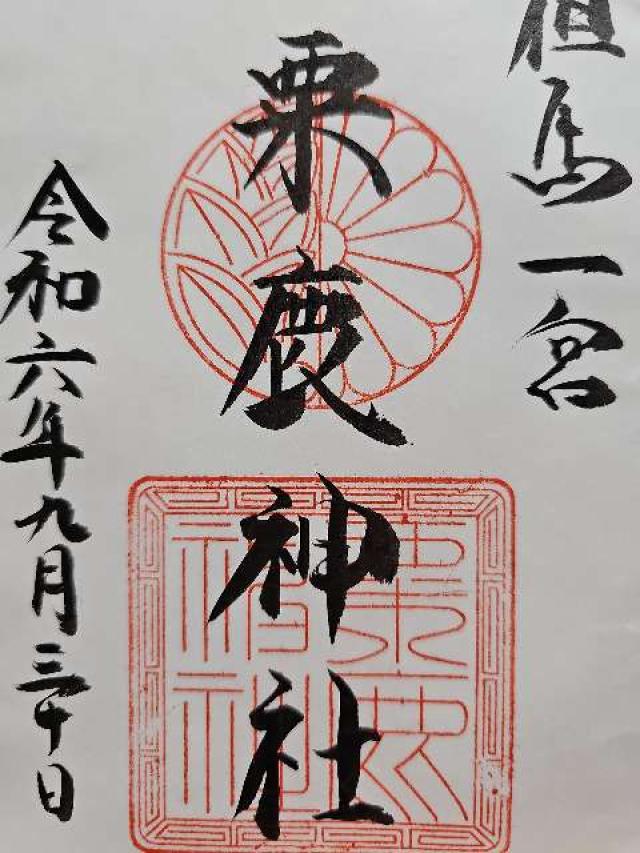 但馬一宮
粟鹿神社
令和六年九月三十日
粟鹿
神社